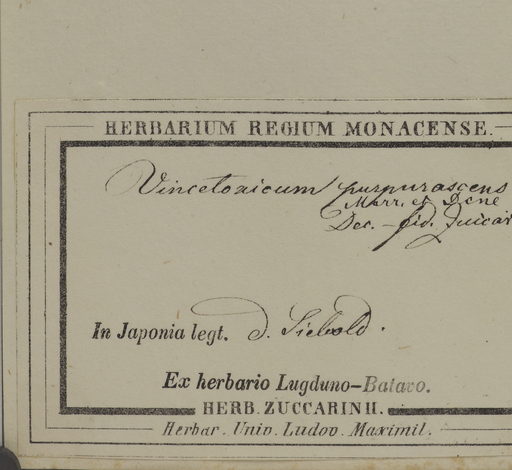 HERBARIUM REGIUM MONACENSE.
Vincetoxicum purpurascens
Morr. et Dcne
Dec. – fid.
In Japonia legt. d. Siebold.
Ex herbario Lugduno–Batavo.
HERB. ZUCCARINII.
Herbar. Univ. Ludov. Maximil.